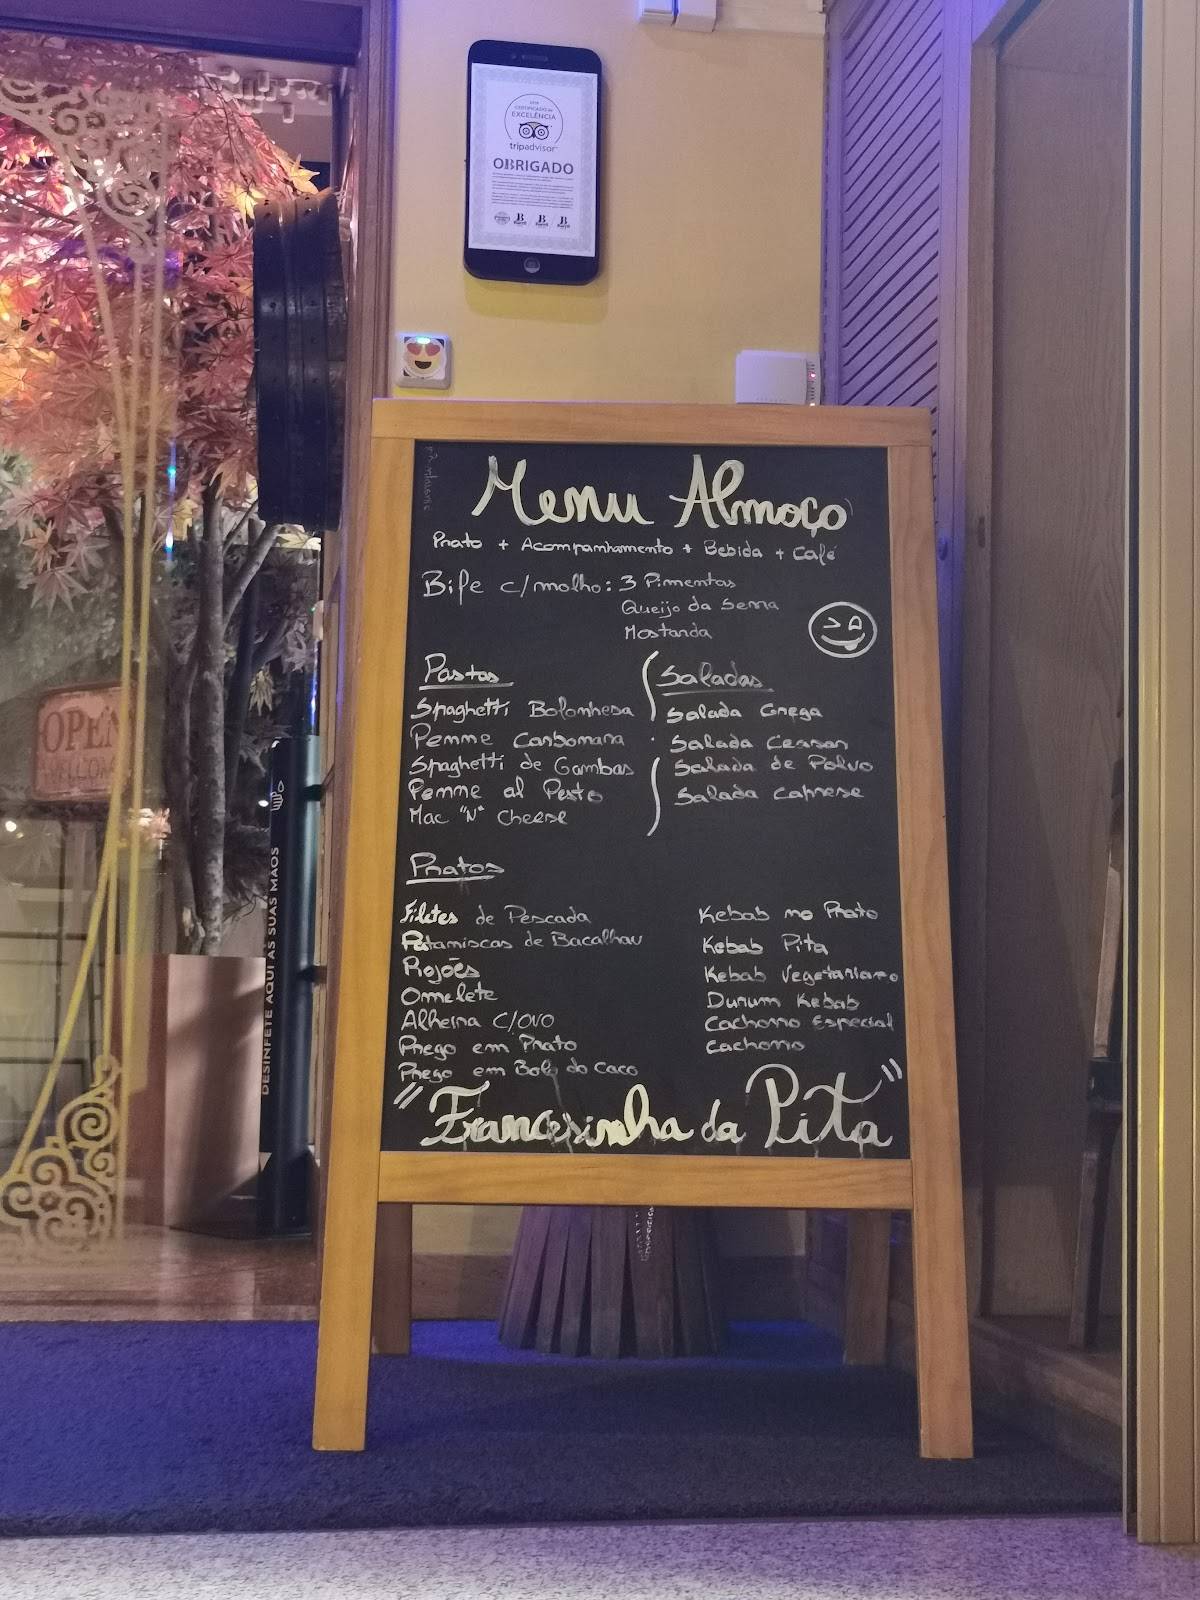 CERTIFICADO de
EXCELÊNCIA
tripadvisor
OBRIGADO
OPEN
DESINFETE AQUI AS SUAS MÃOS
Menu Almoço
Prato + Acompanhamento + Bebida + Café
Bife c/molho: 3 Pimentas
Queijo da Serra
Mostarda
Pastas
Spaghetti Bolonhesa
Penne Carbonara
Spaghetti de Gambas
Penne al Pesto
Mac "N" Cheese
Saladas
Salada Grega
Salada Ceasar
Salada de Polvo
Salada Caprese
Pratos
Filetes de Pescada
Pataniscas de Bacalhau
Rojões
Omelete
Alheira C/OVO
Prego em Prato
Prego em Bolo do Caco
Kebab no Prato
Kebab Pita
Kebab Vegetariano
Durum Kebab
Cachorro Especial
Cachorro
"Francesinha da Pita"